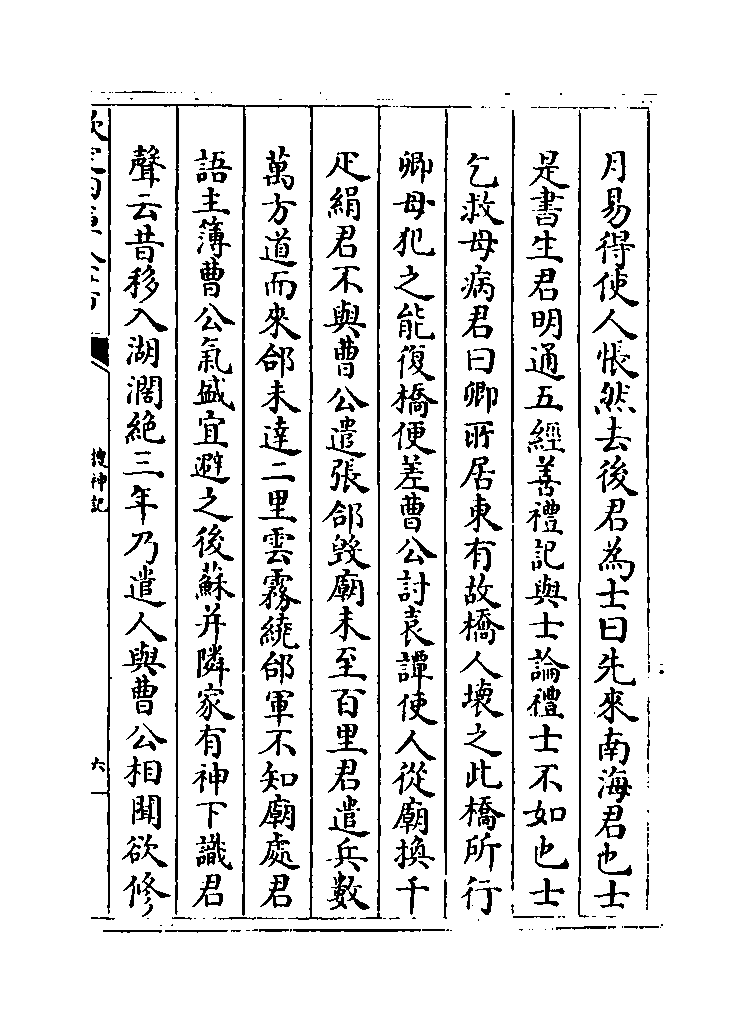 月易得使人悵然去後君為士曰先來南海君也士
是書生君明通五經善禮記與士論禮士不如也士
乞救母病君曰卿所居東有故橋人壞之此橋所行
卿母犯之能復橋便差曹公討袁譚使人從廟換千
疋絹君不與曹公遣張郃毀廟未至百里君遣兵數
萬方道而來郃未達二里雲霧繞郃軍不知廟處君
語主簿曹公氣盛宜避之後蘇并隣家有神下識君
聲云昔移入湖濶絶三年乃遣人與曹公相聞欲修
搜神記
六